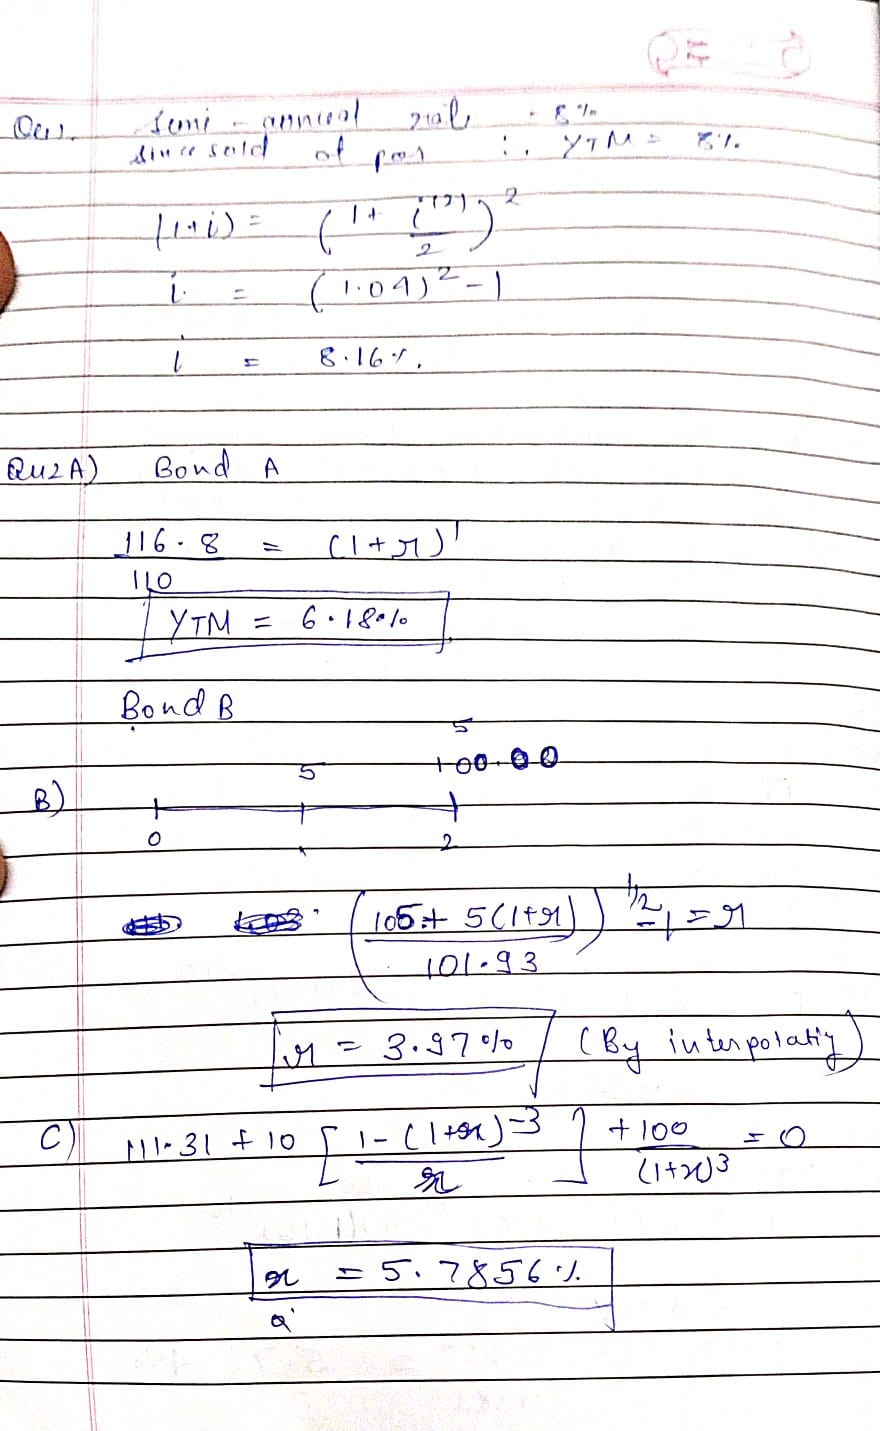 Qu1. Semi-annual rate = 8%
Since sold at par ∴ YTM = 8%
(1+i) = (1 + i^(2)/2)^2
i = (1.04)^2 - 1
i = 8.16%.
Qu2 A) Bond A
116.8 = (1+r)^1
110
YTM = 6.18%
Bond B
5
5 100.00
B)
0 1 2
(105 + 5(1+r))^1/2 - 1 = r
101.93
r = 3.97% (By interpolatig)
C) 111.31 + 10 [1-(1+r)^-3] + 100 = 0
r (1+r)^3
r = 5.7856%.